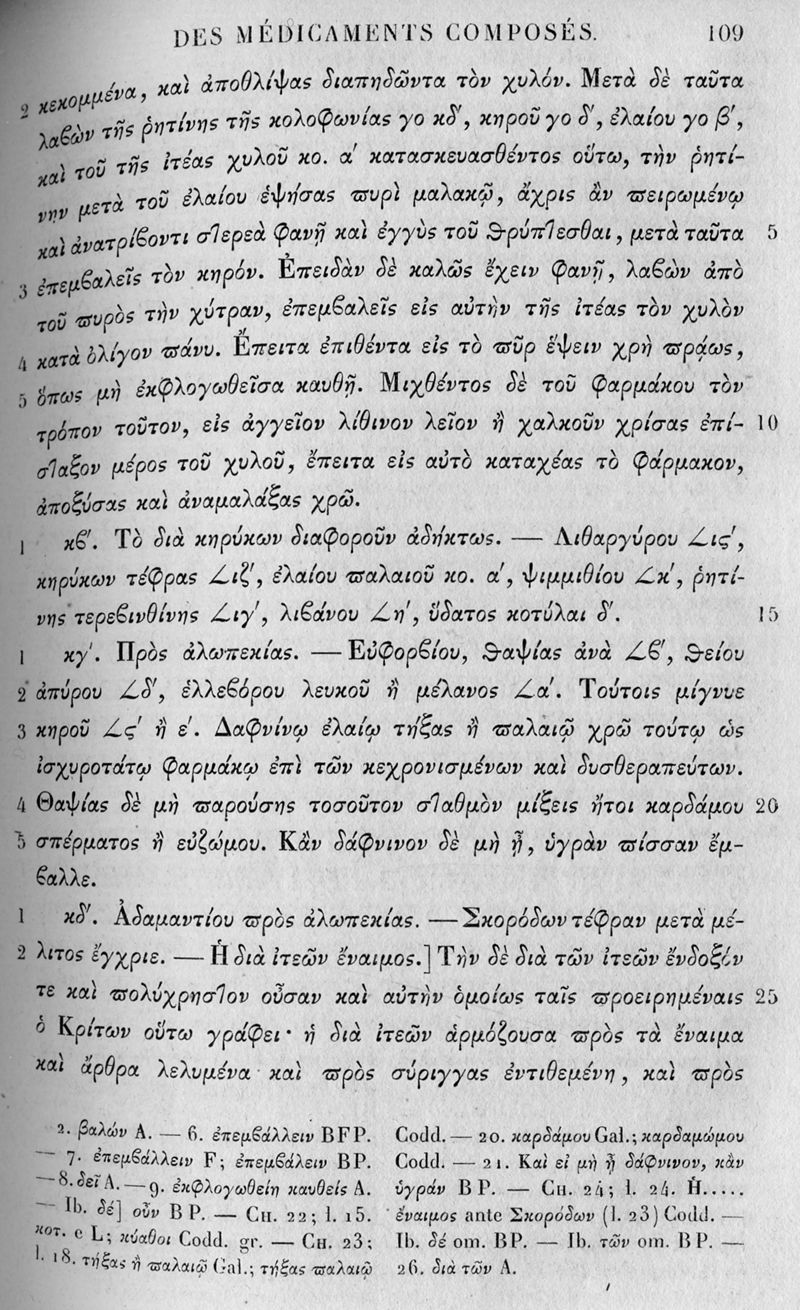 DES MÉDICAMENTS COMPOSÉS. 109
κεκομμένα, καὶ ἀποθλίψας διαπηδῶντα τὸν χυλόν. Μετὰ δὲ ταῦτα
2 λαβὼν τῆς ῥητίνης τῆς κολοφωνίας γο κδʹ, κηροῦ γο δʹ, ἐλαίου γο βʹ,
καὶ τοῦ τῆς ἰτέας χυλοῦ κο. αʹ κατασκευασθέντος οὕτω, τὴν ῥητί-
νην μετὰ τοῦ ἐλαίου ἑψήσας πυρὶ μαλακῷ, ἄχρις ἂν πειρωμένῳ
καὶ ἀνατρίβοντι στερεὰ φανῇ καὶ ἐγγὺς τοῦ θρύπτεσθαι, μετὰ ταῦτα 5
3 ἐπεμβαλεῖς τὸν κηρόν. Ἐπειδὰν δὲ καλῶς ἔχειν φανῇ, λαβὼν ἀπὸ
τοῦ πυρὸς τὴν χύτραν, ἐπεμβαλεῖς εἰς αὐτὴν τῆς ἰτέας τὸν χυλὸν
4 κατὰ ὀλίγον πάνυ. Ἔπειτα ἐπιθέντα εἰς τὸ πῦρ ἕψειν χρὴ πράως,
5 ὅπως μὴ ἐκφλογωθεῖσα καυθῇ. Μιχθέντος δὲ τοῦ φαρμάκου τὸν
τρόπον τοῦτον, εἰς ἀγγεῖον λίθινον λεῖον ἢ χαλκοῦν χρίσας ἐπί- 10
σταξον μέρος τοῦ χυλοῦ, ἔπειτα εἰς αὐτὸ καταχέας τὸ φάρμακον,
ἀποξύσας καὶ ἀναμαλάξας χρῶ.
1 κβʹ. Τὸ διὰ κηρύκων διαφοροῦν ἀδήκτως. — Λιθαργύρου 𐅻ιϛʹ,
κηρύκων τέφρας 𐅻ιζʹ, ἐλαίου παλαιοῦ κο. αʹ, ψιμμιθίου 𐅻κʹ, ῥητί-
νης τερεβινθίνης 𐅻ιγʹ, λιβάνου 𐅻ηʹ, ὕδατος κοτύλαι δʹ. 15
1 κγʹ. Πρὸς ἀλωπεκίας. — Εὐφορβίου, θαψίας ἀνὰ 𐅻βʹ, θείου
2 ἀπύρου 𐅻δʹ, ἑλλεβόρου λευκοῦ ἢ μέλανος 𐅻αʹ. Τούτοις μίγνυε
3 κηροῦ 𐅻ϛʹ ἢ εʹ. Δαφνίνῳ ἐλαίῳ τήξας ἢ παλαιῷ χρῶ τούτῳ ὡς
ἰσχυροτάτῳ φαρμάκῳ ἐπὶ τῶν κεχρονισμένων καὶ δυσθεραπεύτων.
4 Θαψίας δὲ μὴ παρούσης τοσοῦτον σταθμὸν μίξεις ἤτοι καρδάμου 20
5 σπέρματος ἢ εὐζώμου. Κἂν δάφνινον δὲ μὴ ᾖ, ὑγρὰν πίσσαν ἔμ-
βαλλε.
1 κδʹ. Ἀδαμαντίου πρὸς ἀλωπεκίας. — Σκορόδων τέφραν μετὰ μέ-
2 λιτος ἔγχριε. — Ἡ διὰ ἰτεῶν ἔναιμος.] Τὴν δὲ διὰ τῶν ἰτεῶν ἔνδοξόν
τε καὶ πολύχρηστον οὖσαν καὶ αὐτὴν ὁμοίως ταῖς προειρημέναις 25
ὁ Κρίτων οὕτω γράφει· ἡ διὰ ἰτεῶν ἁρμόζουσα πρὸς τὰ ἔναιμα
καὶ ἄρθρα λελυμένα καὶ πρὸς σύριγγας ἐντιθεμένη, καὶ πρὸς
2. βαλών A. — 6. ἐπεμβάλλειν BFP.
— 7. ἐπεμβάλλειν F; ἐπεμβάλειν BP.
— 8. δεῖ A. — 9. ἐκφλογωθείη καυθείς A.
— Ib. δέ] οὖν BP. — Ch. 22; l. 15.
κοτ. c L; κύαθοι Codd. gr. — Ch. 23;
l. 18. τήξας ἢ παλαιῷ Gal.; τήξας παλαιῷ
Codd. — 20. καρδάμου Gal.; καρδαμώμου
Codd. — 21. Καὶ εἰ μὴ ᾖ δάφνινον, κἂν
ὑγράν BP. — Ch. 24; l. 24. Ἡ.....
ἔναιμος ante Σκορόδων (l. 23) Codd. —
Ib. δέ om. BP. — Ib. τῶν om. BP. —
26. διὰ τῶν A.